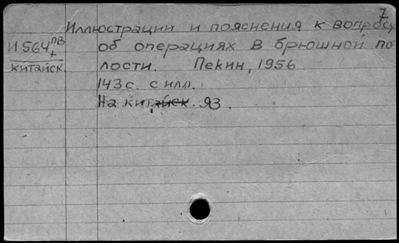 7
Иллюстрации и пояснения к вопросу
И 564 пв об операциях в брюшной по
+
китайск. лости. Пекин, 1956
143 с. с илл.
На китайск. яз.